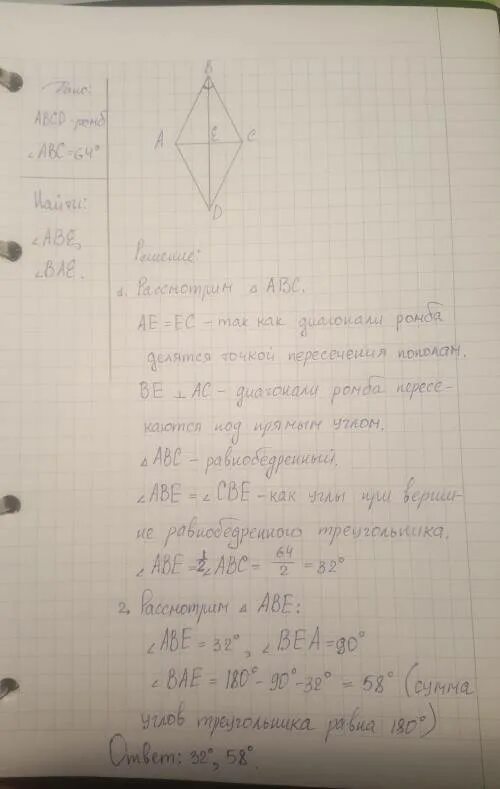 Дано:
ABCD-ромб
∠ABC=64°
Найти:
∠ABE,
∠BAE.
B
A
E
C
D
Решение:
1. Рассмотрим △ ABC.
AE=EC – так как диагонали ромба
делятся точкой пересечения пополам.
BE ⊥ AC – диагонали ромба пересе-
каются под прямым углом.
△ ABC – равнобедренный.
∠ABE = ∠CBE – как углы при верши-
не равнобедренного треугольника.
∠ABE = 1/2 ∠ABC = 64/2 = 32°
2. Рассмотрим △ ABE:
∠ABE = 32°, ∠BEA = 90°
∠BAE = 180° – 90° – 32° = 58° (сумма
углов треугольника равна 180°)
Ответ: 32°, 58°.